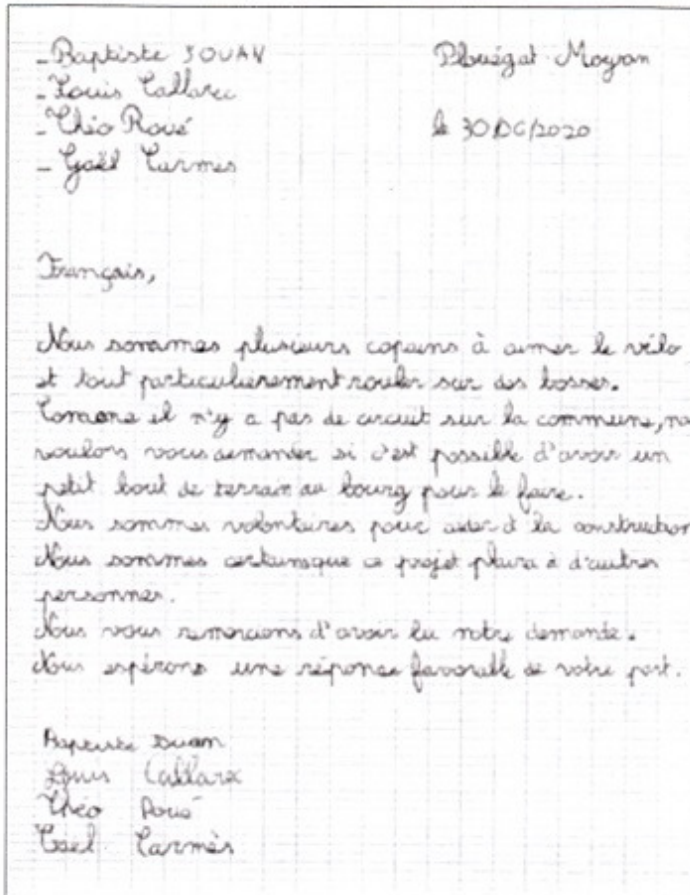 - Baptiste JOUAN
Plouégat Moysan
- Louis Callarec
- Théo Roué
le 30 DC/2020
- Gaël Carmes
Français,
Nous sommes plusieurs copains à aimer le vélo
et tout particulièrement rouler sur des bosses.
Comme il n'y a pas de circuit sur la commune, no
voulons vous demander si c'est possible d'avoir un
petit bout de terrain au bourg pour le faire.
Nous sommes volontaires pour aider à la construction
Nous sommes certains que ce projet plaira à d'autres
personnes.
Nous vous remercions d'avoir lu notre demande.
Nous espérons une réponse favorable de votre part.
Baptiste Jouan
Louis Callarec
Théo Roué
Gael Carmès